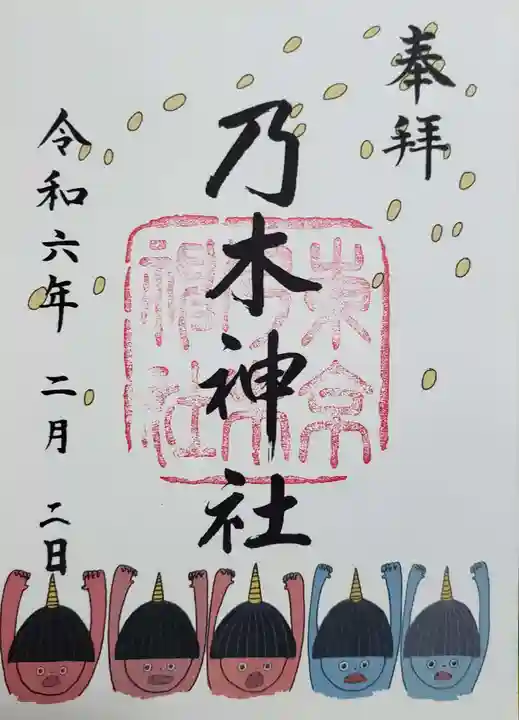 奉拝
乃木神社
東京乃木神社
令和六年 二月 二日